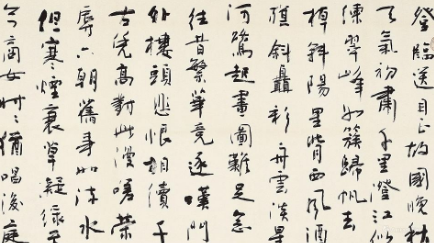 登臨送目正故國晚秋
天氣初肅千里澄江似
練翠峰如簇歸帆去
棹斜陽里背西風酒
旗斜矗彩舟雲淡星
河鷺起畫圖難足念
往昔繁華競逐嘆門
外樓頭悲恨相續千
古凭高對此漫嗟榮
辱六朝舊事如流水
但寒煙衰草凝綠至
今商女時時猶唱後庭